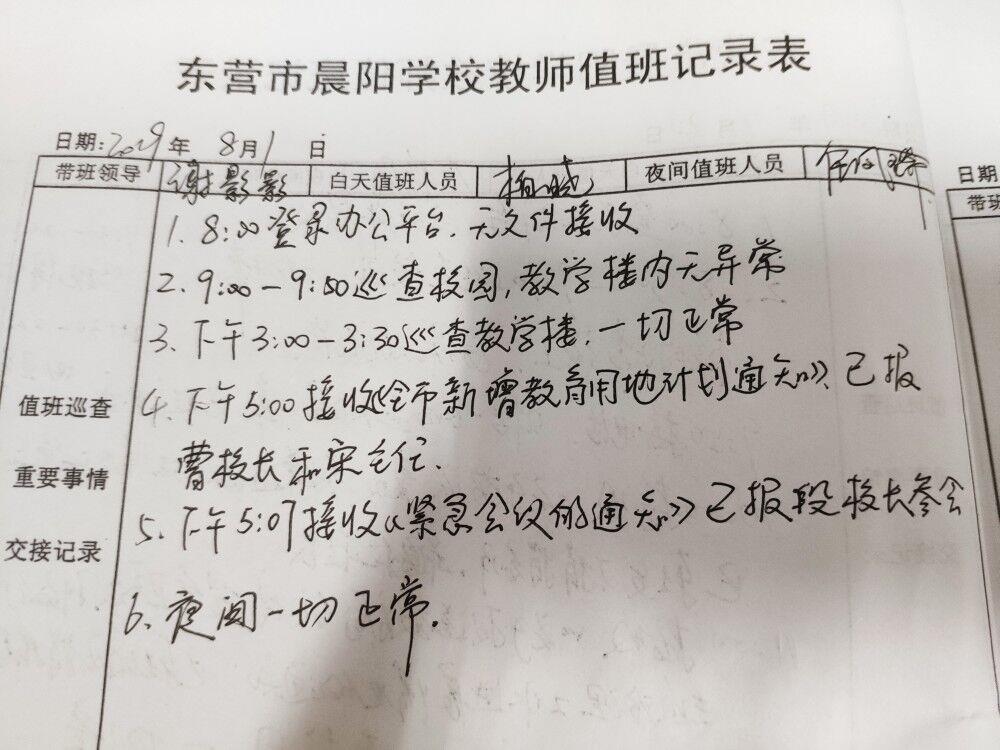 东营市晨阳学校教师值班记录表
日期:2019年 8月1日
带班领导 谢影影 白天值班人员 夜间值班人员
1. 8:00登录办公平台、无文件接收
2. 9:00-9:50巡查校园,教学楼内无异常
3、下午3:00-3:30巡查教学楼,一切正常
值班巡查
4、下午5:00接收《全市新增教育用地计划通知》、已报
曹校长和宋主任、
重要事情
5、下午5:07接收《紧急会议的通知》已报段校长参会
交接记录
6、夜间一切正常.
日期
带班